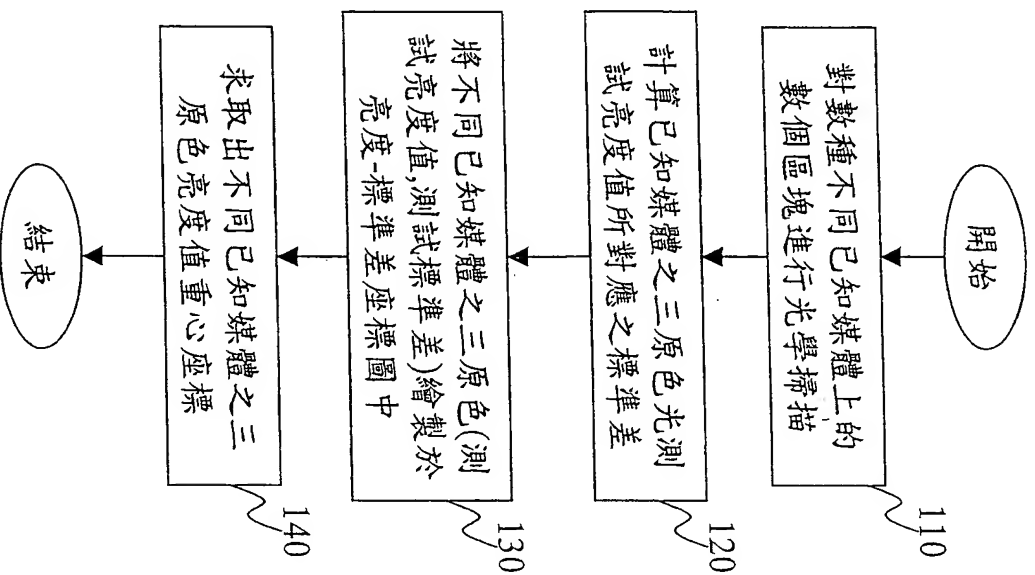 開始
對數種不同已知媒體上的
數個區塊進行光學掃描
110
計算已知媒體之三原色光測
試亮度值所對應之標準差
120
將不同已知媒體之三原色(測
試亮度值,測試標準差)繪製於
亮度-標準差座標圖中
130
求取出不同已知媒體之三
原色亮度值重心座標
140
結束